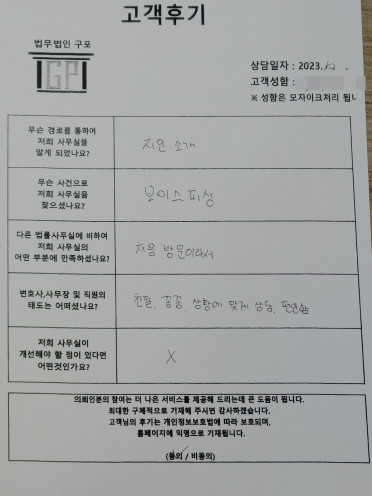 고객후기
법무법인 구포
GP
상담일자 : 2023. 12 .
고객성함 :
※ 성함은 모자이크처리 됩니
무슨 경로를 통하여
저희 사무실을
알게 되었나요?
지인 소개
무슨 사건으로
저희 사무실을
찾으셨나요?
보이스피싱
다른 법률사무실에 비하여
저희 사무실의
어떤 부분에 만족하셨나요?
처음 방문이라서
변호사,사무장 및 직원의
태도는 어떠셨나요?
친절, 꼼꼼, 상황에 맞게 상담, 편안함
저희 사무실이
개선해야 할 점이 있다면
어떤것인가요?
X
의뢰인분의 참여는 더 나은 서비스를 제공해 드리는데 큰 도움이 됩니다.
최대한 구체적으로 기재해 주시면 감사하겠습니다.
고객님의 후기는 개인정보보호법에 따라 보호되며,
홈페이지에 익명으로 기재됩니다.
(동의 / 비동의)